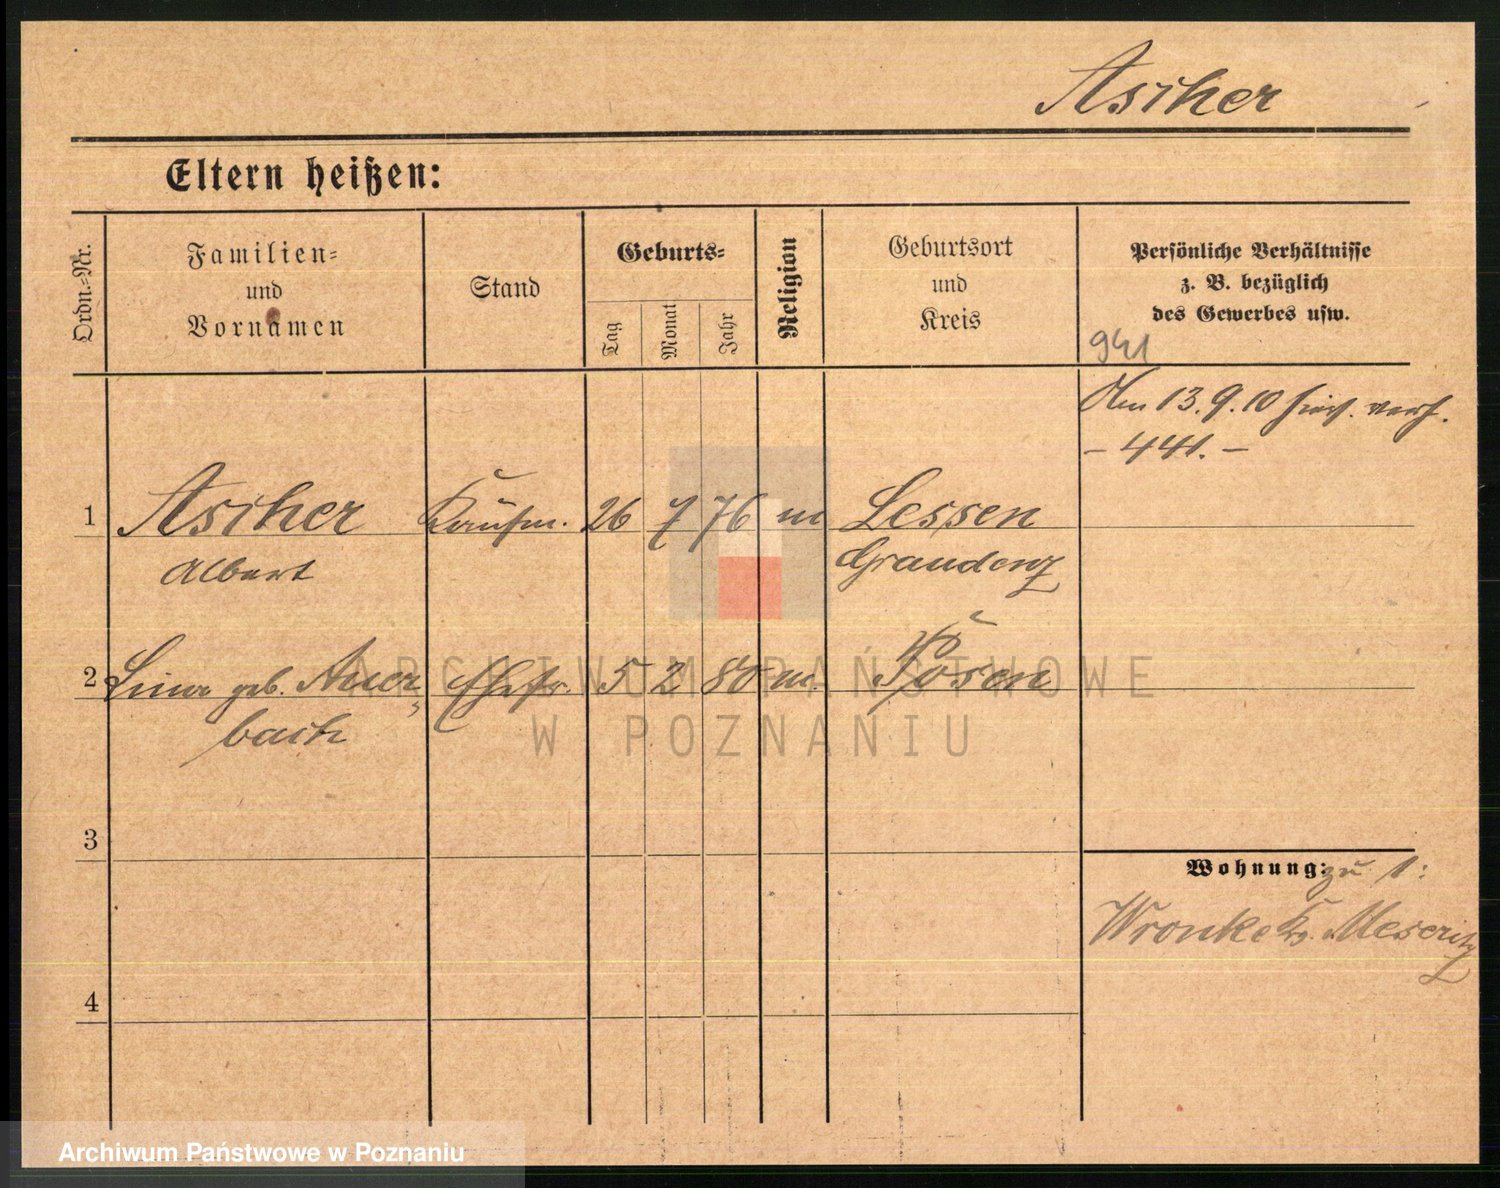 Ascher
Eltern heißen:
Ordn.-Nr.
Familien-
und
Vornamen
Stand
Geburts-
Tag
Monat
Jahr
Religion
Geburtsort
und
Kreis
Persönliche Verhältnisse
z. B. bezüglich
des Gewerbes usw.
941
Am 13.9.10 hier. verh.
- 441. -
1 Ascher Kaufm. 26 7 76 m Lessen
Albert Graudenz
2 geb. Auer= Ehefr. 5 2 80 m. Posen
bach
3
Wohnung: zu 1:
Wronke Kr. Meseritz
4
ARCHIWUM PAŃSTWOWE
W POZNANIU
Archiwum Państwowe w Poznaniu